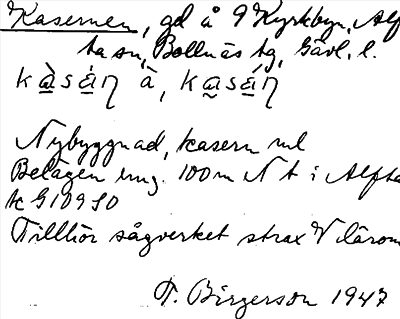 Kasernen, gd å 9 Kyrkbyn, Alf
ta sn, Bollnäs tg, Gävl. l.
Nybyggnad, kasern ml
Belägen ung. 100 m N t i Alfta
k G 109 SO
Tillhör sågverket strax V därom
T. Birgerson 1947